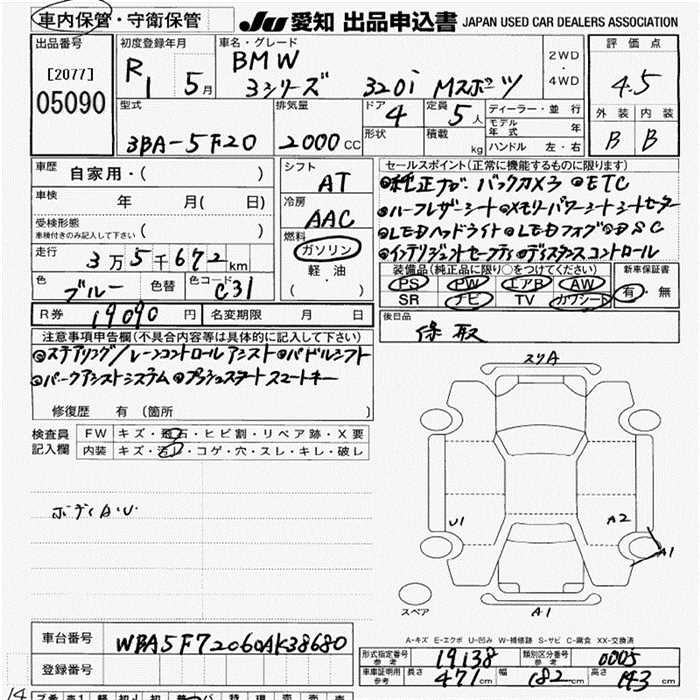 車内保管・守衛保管
JU 愛知 出品申込書 JAPAN USED CAR DEALERS ASSOCIATION
出品番号
[2077]
05090
初度登録年月
R1 5月
車名・グレード
BMW
3シリーズ 320i Mスポーツ
2WD・4WD
評価点
4.5
型式
3BA-5F20
排気量
2000 CC
ドア 4
形状
定員 5 人
積載 kg
ディーラー・並行
モデル年式 年
ハンドル 左・右
外装 内装
B B
車歴
自家用・( )
車検
年 月( 日)
受検形態
車検付きのみ記入して下さい ( )
走行
3万5千672km
色 ブルー 色替 色コード C31
シフト
AT
冷房
AAC
燃料
ガソリン
軽油
( ・ )
セールスポイント(正常に機能するものに限ります)
◎純正ナビ バックカメラ ◎ETC
◎ハーフレザーシート ◎メモリーパワーシート シートヒーター
◎LEDヘッドライト ◎LEDフォグ ◎DSC
◎インテリジェントセーフティ ◎ディスタンスコントロール
装備品(純正品に限り○をつけてください)
PS PW エアB AW
SR ナビ TV カワシート
新車保証書
有・無
R券 19090 円 名変期限 月 日
後日品
保 取
注意事項申告欄(不具合内容等は具体的に記入して下さい)
◎ステアリング/レーンコントロールアシスト ◎パドルシフト
◎パークアシストシステム ◎プッシュスタート スマートキー
修復歴 有(箇所 )
検査員記入欄
FW キズ・飛石・ヒビ割・リペア跡・X要
内装 キズ・汚れ・コゲ・穴・スレ・キレ・破レ
3
3
ボディA・U
スリA
U1
A2
A1
A1
スペア
A-キズ E-エクボ U-凹み W-補修跡 S-サビ C-腐食 XX-交換済
車台番号 WBA5F72060AK38680
登録番号
形式指定番号 参考 19138 類別区分番号 参考 0005
車庫証明用 参考 長さ 471cm 幅 182cm 高さ 143cm
14